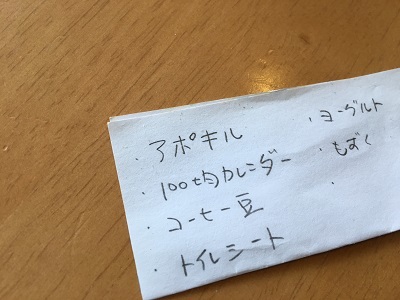 ・アポキル
・100均カレンダー
・コーヒー豆
・トイレシート
・ヨーグルト
・もずく
・